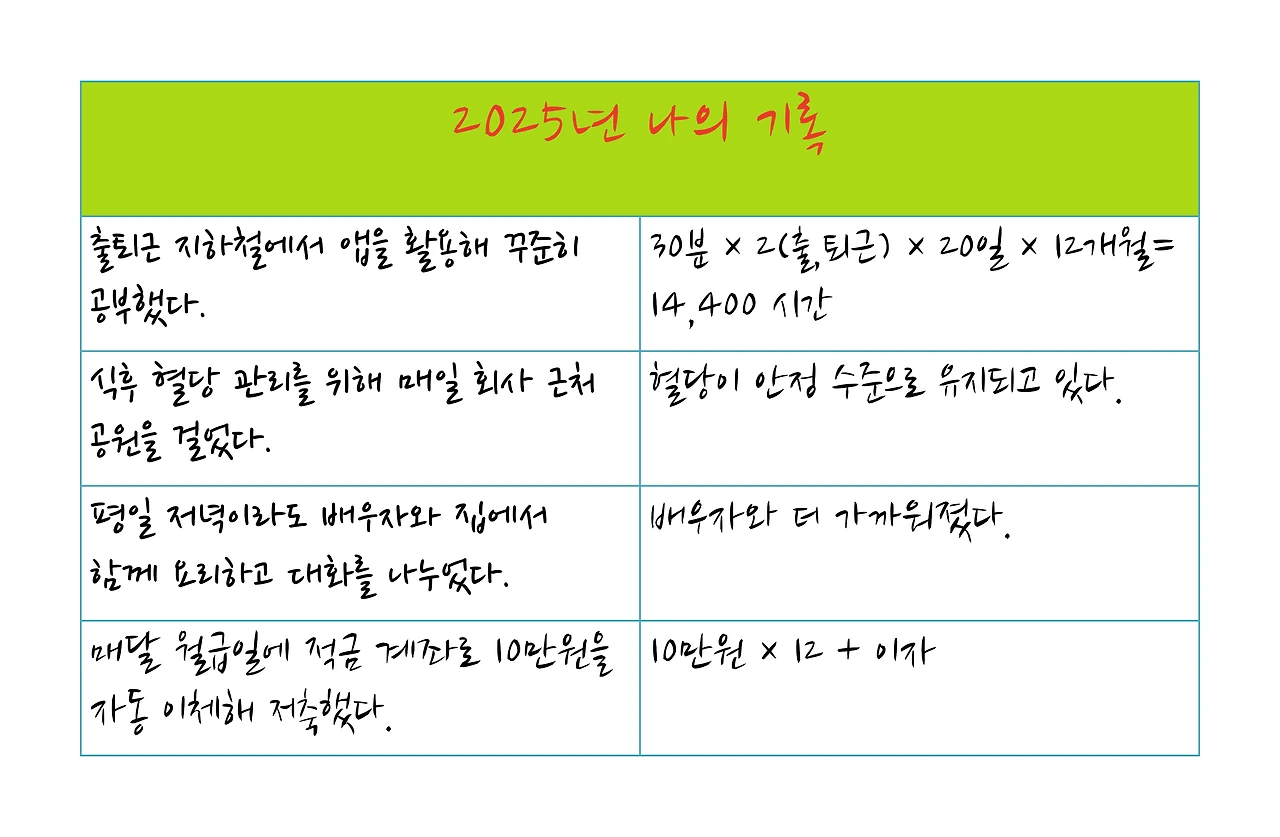 2025년 나의 기록
출퇴근 지하철에서 앱을 활용해 꾸준히
공부했다.
30분 × 2(출,퇴근) × 20일 × 12개월=
14,400 시간
식후 혈당 관리를 위해 매일 회사 근처
공원을 걸었다.
혈당이 안정 수준으로 유지되고 있다.
평일 저녁이라도 배우자와 집에서
함께 요리하고 대화를 나누었다.
배우자와 더 가까워졌다.
매달 월급일에 적금 계좌로 10만원을
자동 이체해 저축했다.
10만원 × 12 + 이자